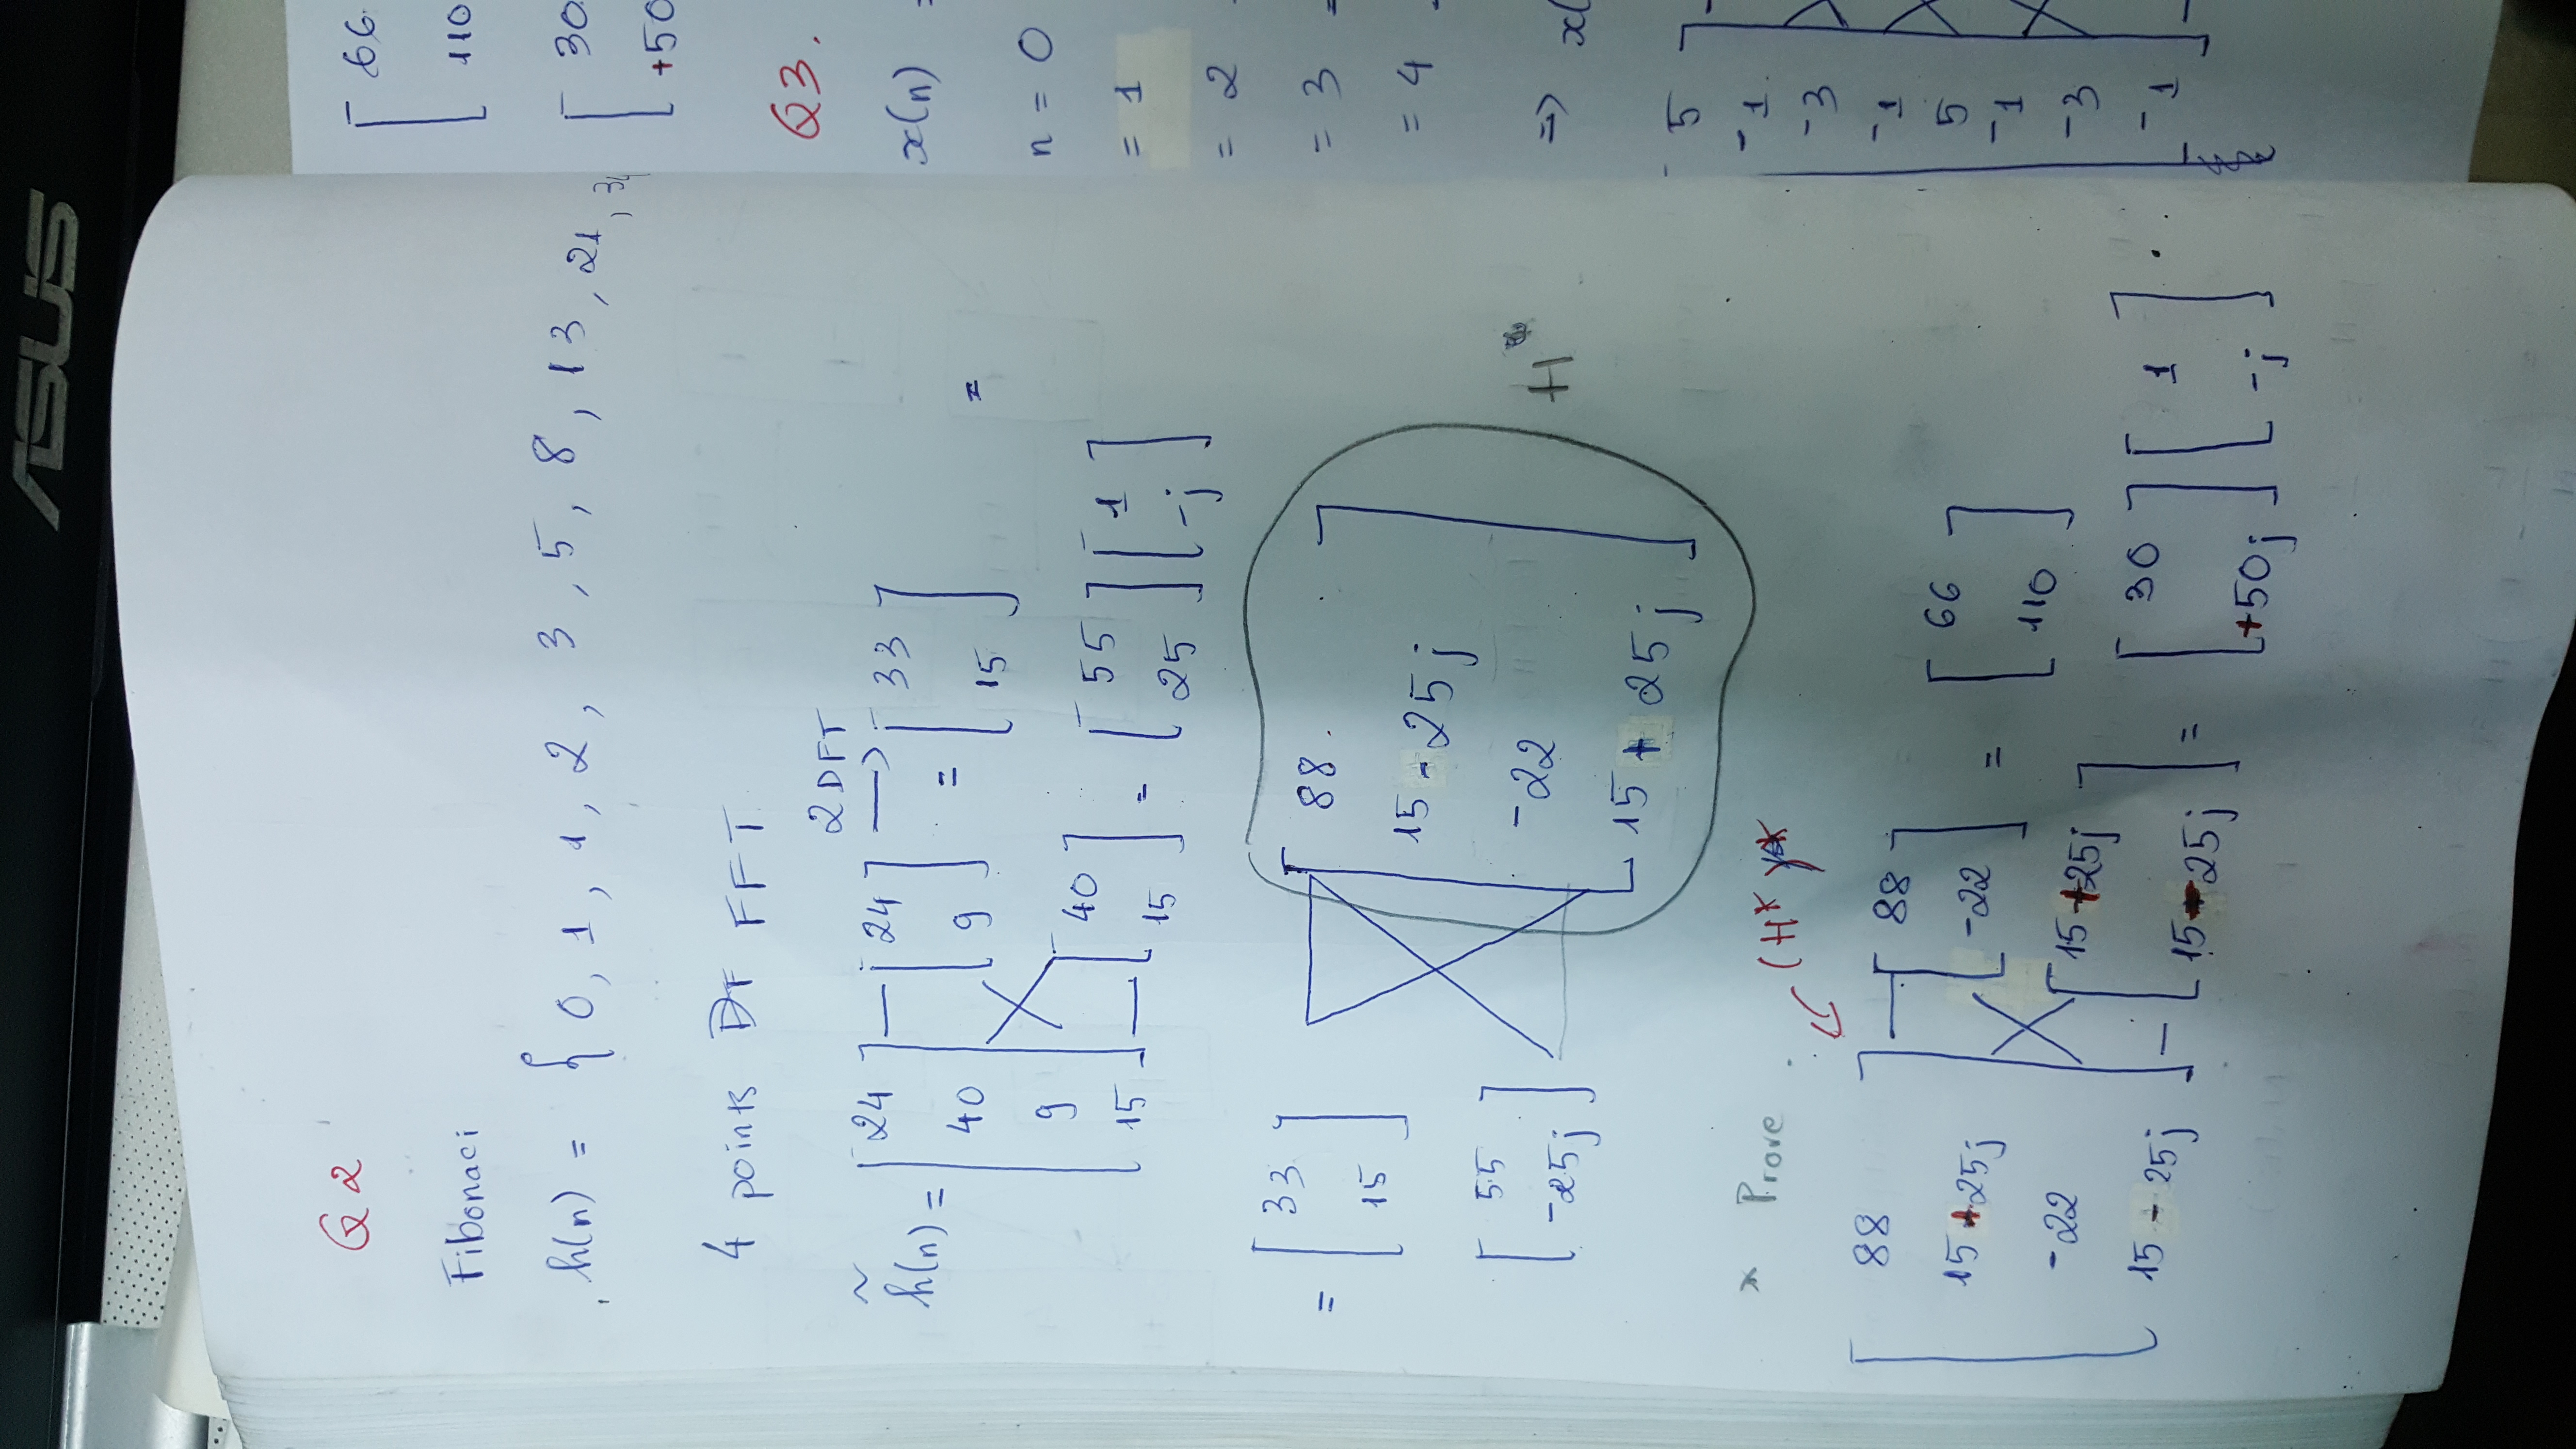 ASUS
Q2
Fibonaci
h(n) = { 0, 1, 1, 2, 3, 5, 8, 13, 21, 34
4 points DT FFT
2 DFT
h̃(n) = [ 24 40 9 15 ] [ 24 9 ] = [ 33 15 ] =
[ 40 15 ] = [ 55 25 ] [ 1 -j ]
= [ 33 15 ]
[ 55 -25j ]
[ 88 15 - 25j -22 15 + 25j ] H
* Prove
(H*)*
[ 88 15 + 25j -22 15 - 25j ] [ 88 -22 ] = [ 66 110 ]
[ 15 + 25j 15 - 25j ] = [ 30 +50j ] [ 1 -j ]
[ 66
110
[ 30
+50
Q3.
x(n) =
n = 0
= 1
= 2
= 3 =
= 4
=> x(
5
-1
-3
-1
5
-1
-3
-1